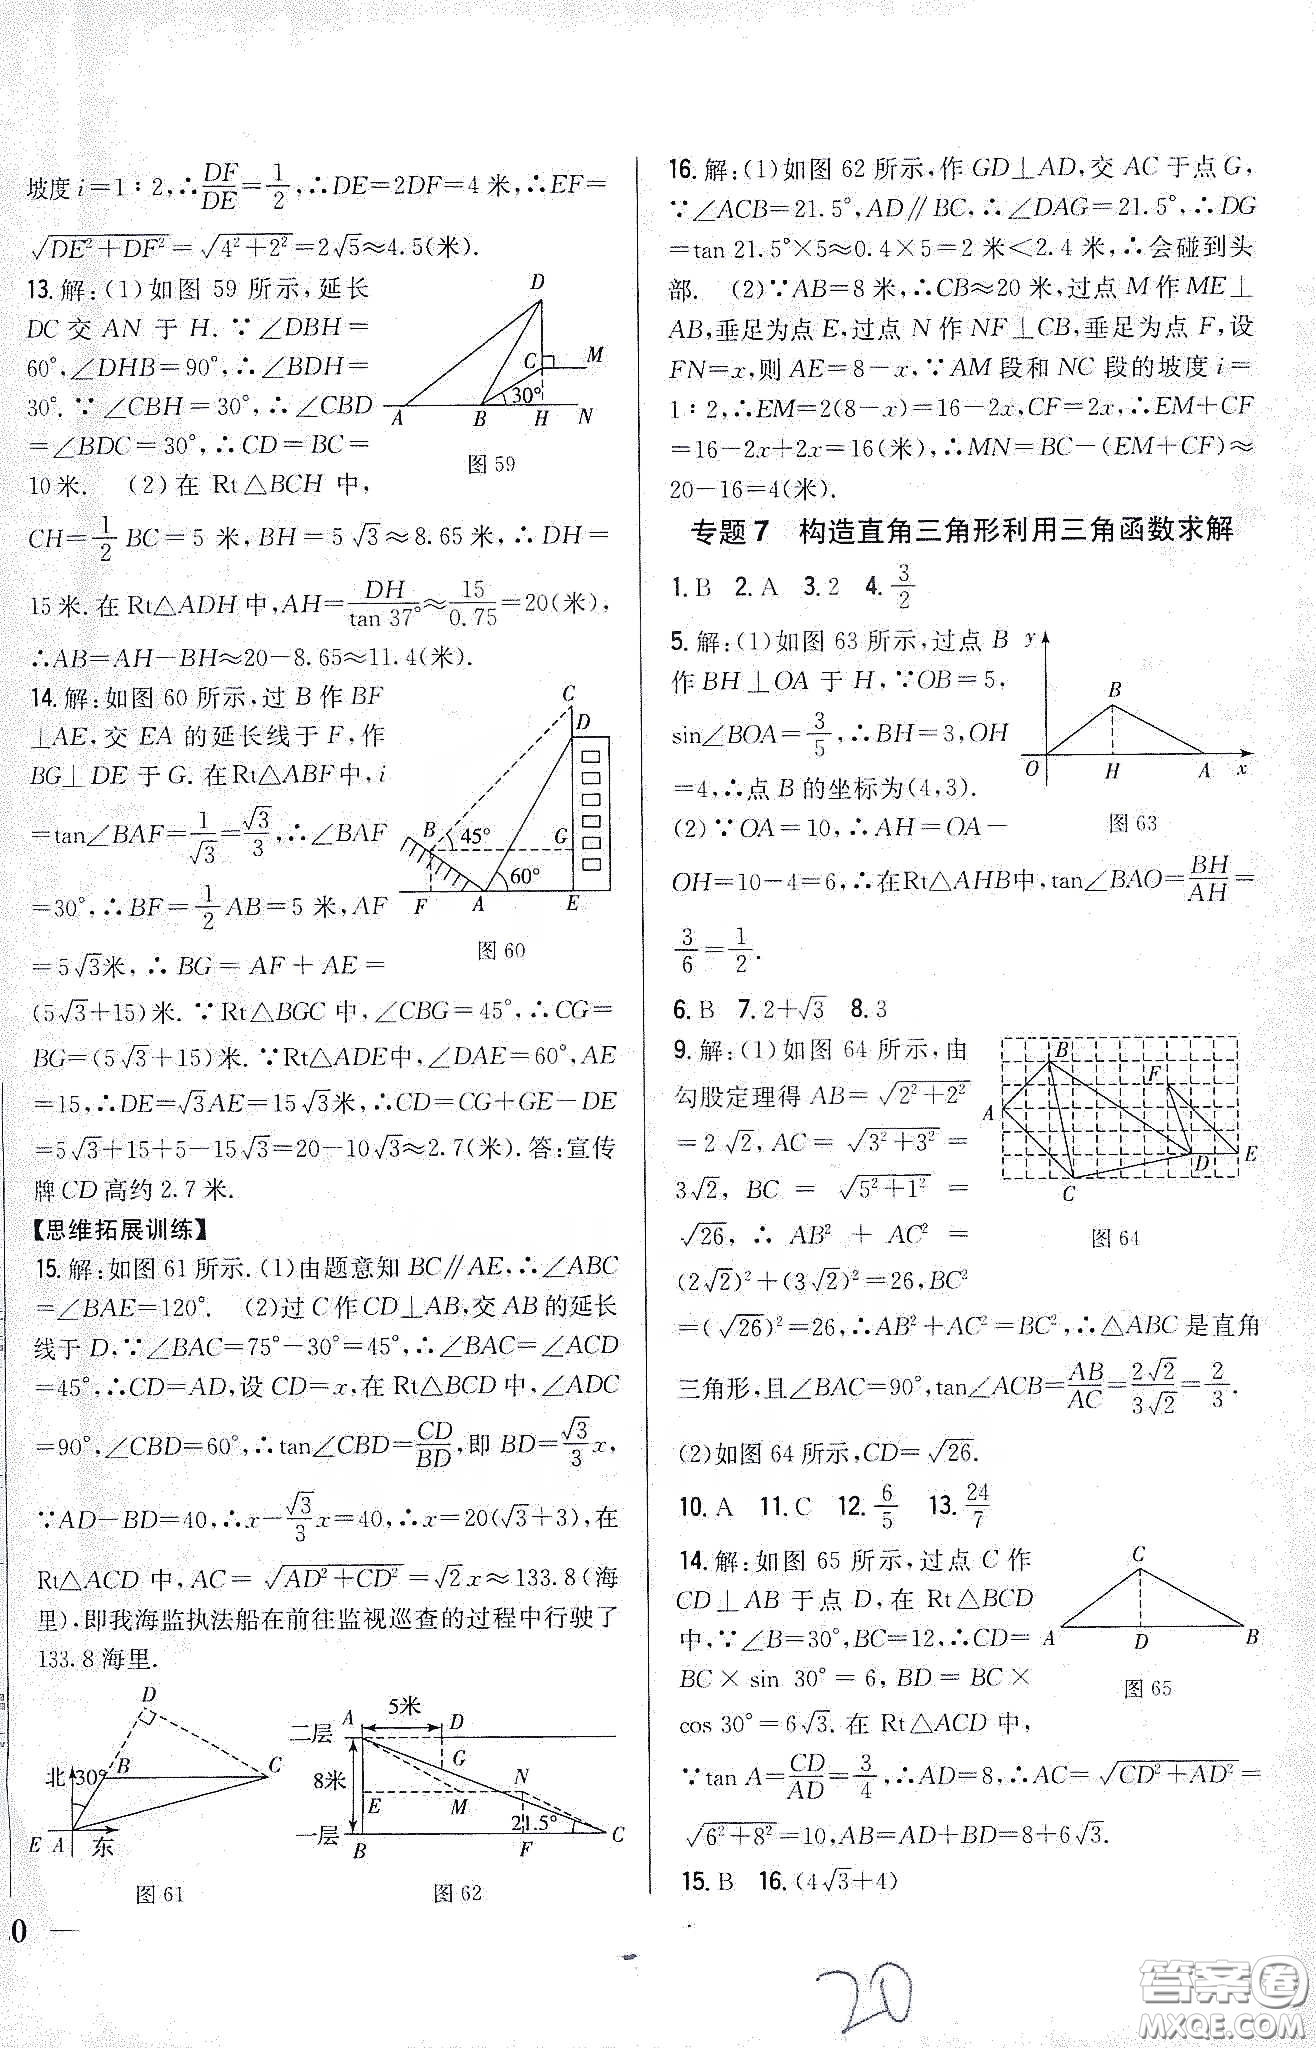 坡度 i=1∶2,∴DF/DE=1/2,∴DE=2DF=4 米,∴EF=
√(DE²+DF²)=√(4²+2²)=2√5≈4.5(米).
13.解:(1)如图 59 所示,延长
DC 交 AN 于 H.∵∠DBH=
60°,∠DHB=90°,∴∠BDH=
30°.∵∠CBH=30°,∴∠CBD
=∠BDC=30°,∴CD=BC=
10米. (2)在 Rt△BCH 中,
D
C
M
30°
A B H N
图 59
CH=1/2 BC=5 米,BH=5√3≈8.65米,∴DH=
15米.在 Rt△ADH 中,AH=DH/tan 37°≈15/0.75=20(米),
∴AB=AH−BH≈20−8.65≈11.4(米).
14.解:如图 60 所示,过 B 作 BF
⊥AE,交 EA 的延长线于 F,作
BG⊥DE 于 G.在Rt△ABF中,i
=tan∠BAF=1/√3=√3/3,∴∠BAF
=30°,∴BF=1/2AB=5 米,AF
=5√3米,∴BG=AF+AE=
C
D
B 45° G
60°
F A E
图 60
(5√3+15)米.∵Rt△BGC 中,∠CBG=45°,∴CG=
BG=(5√3+15)米.∵Rt△ADE中,∠DAE=60°,AE
=15,∴DE=√3AE=15√3米,∴CD=CG+GE−DE
=5√3+15+5−15√3=20−10√3≈2.7(米).答:宣传
牌CD高约 2.7 米.
【思维拓展训练】
15.解:如图61所示.(1)由题意知 BC∥AE,∴∠ABC
=∠BAE=120°. (2)过C作CD⊥AB,交 AB的延长
线于 D,∵∠BAC=75°−30°=45°,∴∠BAC=∠ACD
=45°,∴CD=AD,设 CD=x,在 Rt△BCD 中,∠ADC
=90°,∠CBD=60°,∴tan∠CBD=CD/BD,即 BD=√3/3 x,
∵AD−BD=40,∴x−√3/3 x=40,∴x=20(√3+3),在
Rt△ACD 中,AC=√(AD²+CD²)=√2x≈133.8(海
里),即我海监执法船在前往监视巡查的过程中行驶了
133.8 海里.
D
北 30° B C
E A 东
图 61
5米
二层 A D
G
8米 N
E M
21.5°
一层 B F C
图 62
0 —
16.解:(1)如图 62 所示,作 GD⊥AD,交 AC 于点 G,
∵∠ACB=21.5°,AD∥BC,∴∠DAG=21.5°,∴DG
=tan 21.5°×5≈0.4×5=2 米<2.4 米,∴会碰到头
部. (2)∵AB=8米,∴CB≈20米,过点M作ME⊥
AB,垂足为点 E,过点 N 作 NF⊥CB,垂足为点 F,设
FN=x,则 AE=8−x,∵AM 段和 NC 段的坡度 i=
1∶2,∴EM=2(8−x)=16−2x,CF=2x,∴EM+CF
=16−2x+2x=16(米),∴MN=BC−(EM+CF)≈
20−16=4(米).
专题 7 构造直角三角形利用三角函数求解
1.B 2.A 3.2 4.3/2
5.解:(1)如图 63所示,过点 B
作 BH⊥OA 于 H,∵OB=5,
sin∠BOA=3/5,∴BH=3,OH
=4,∴点 B 的坐标为(4,3).
(2)∵OA=10,∴AH=OA−
y
B
O H A x
图 63
OH=10−4=6,∴在Rt△AHB中,tan∠BAO=BH/AH=
3/6=1/2.
6.B 7.2+√3 8.3
9.解:(1)如图 64 所示,由
勾股定理得 AB=√(2²+2²)
=2√2,AC=√(3²+3²)=
3√2,BC=√(5²+1²)=
√26,∴AB²+AC²=
(2√2)²+(3√2)²=26,BC²
B
F
A
D E
C
图 64
=(√26)²=26,∴AB²+AC²=BC²,∴△ABC 是直角
三角形,且∠BAC=90°,tan∠ACB=AB/AC=2√2/3√2=2/3.
(2)如图 64 所示,CD=√26.
10.A 11.C 12.6/5 13.24/7
14.解:如图 65 所示,过点 C 作
CD⊥AB 于点 D,在 Rt△BCD
中,∵∠B=30°,BC=12,∴CD=
BC×sin 30°=6,BD=BC×
cos 30°=6√3.在 Rt△ACD 中,
C
A D B
图 65
∵tan A=CD/AD=3/4,∴AD=8,∴AC=√(CD²+AD²)=
√(6²+8²)=10,AB=AD+BD=8+6√3.
15.B 16.(4√3+4)
20
答案圈
MXQE.COM